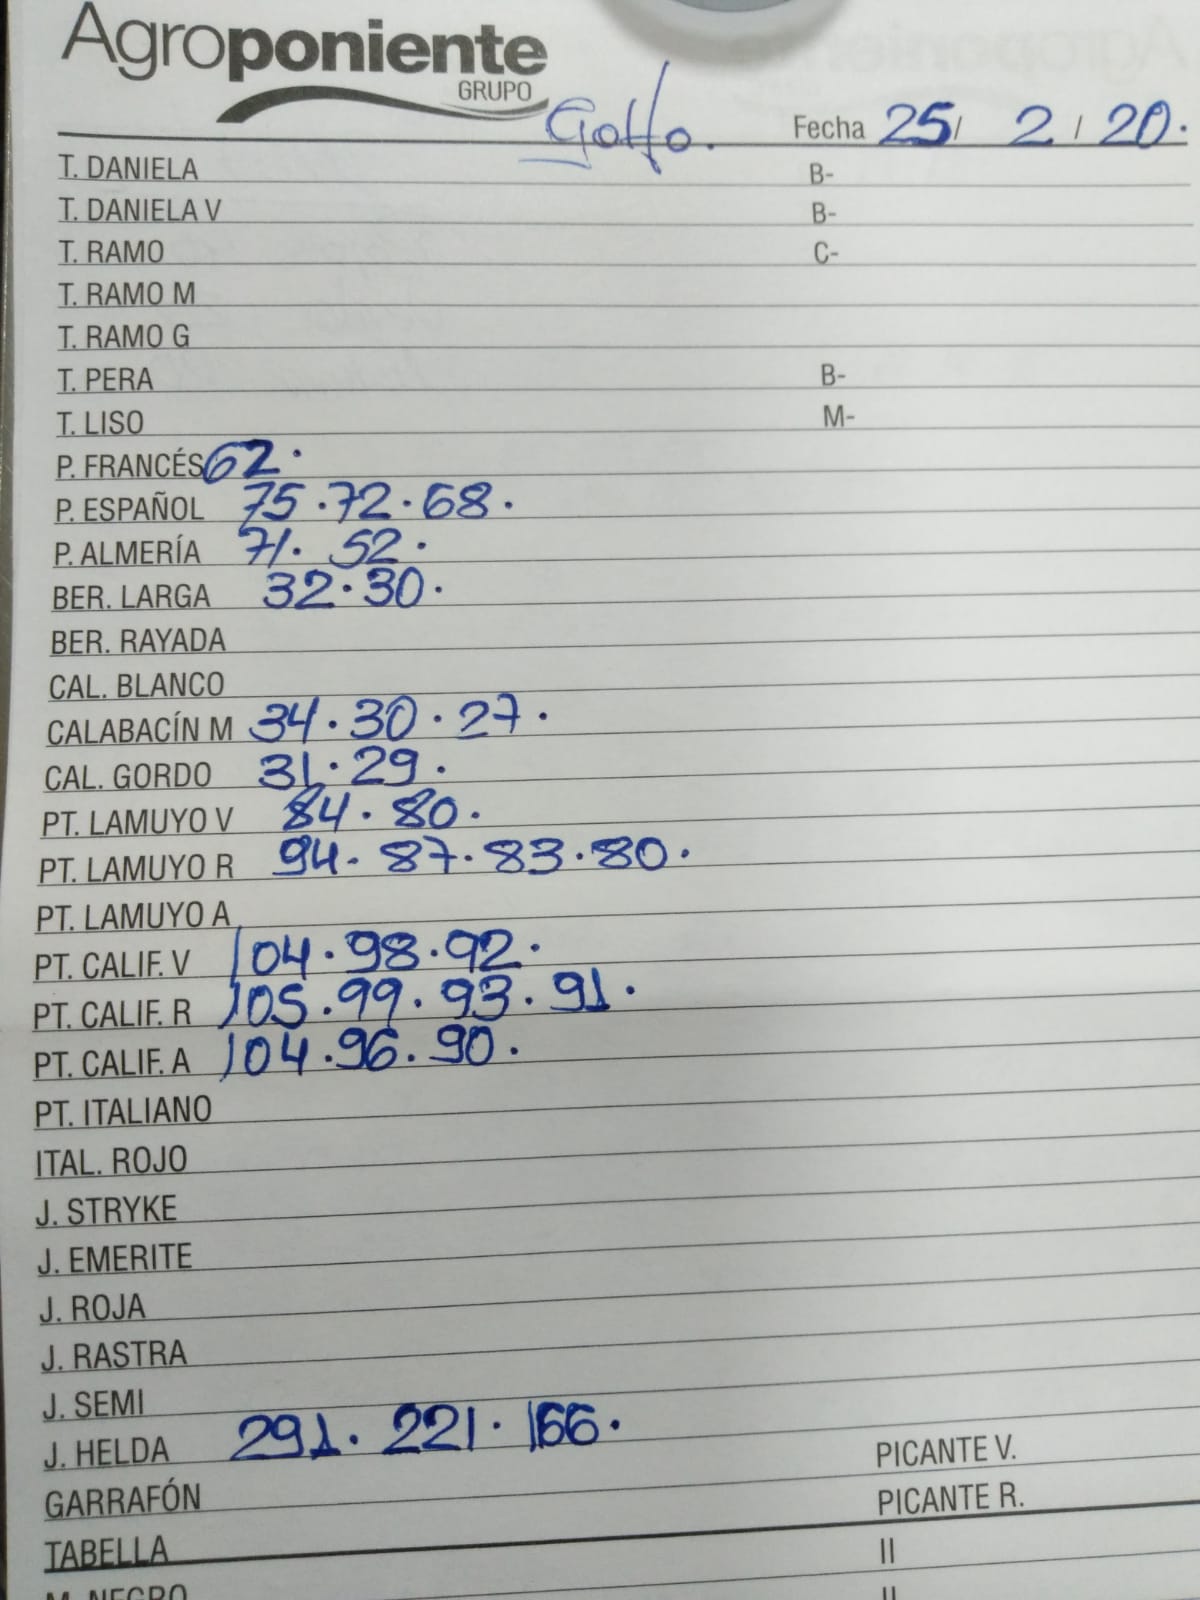 Agroponiente
GRUPO
Golfo. Fecha 25/ 2 / 20.
T. DANIELA B-
T. DANIELA V B-
T. RAMO C-
T. RAMO M
T. RAMO G
T. PERA B-
T. LISO M-
P. FRANCÉS 62.
P. ESPAÑOL 75.72.68.
P. ALMERÍA 71. 52.
BER. LARGA 32.30.
BER. RAYADA
CAL. BLANCO
CALABACÍN M 34.30.27.
CAL. GORDO 31.29.
PT. LAMUYO V 84. 80.
PT. LAMUYO R 94. 87.83.80.
PT. LAMUYO A
PT. CALIF. V 104.98.92.
PT. CALIF. R 105.99.93.91.
PT. CALIF. A 104.96.90.
PT. ITALIANO
ITAL. ROJO
J. STRYKE
J. EMERITE
J. ROJA
J. RASTRA
J. SEMI
J. HELDA 291. 221. 166. PICANTE V.
GARRAFÓN PICANTE R.
TABELLA II
M. NEGRO II